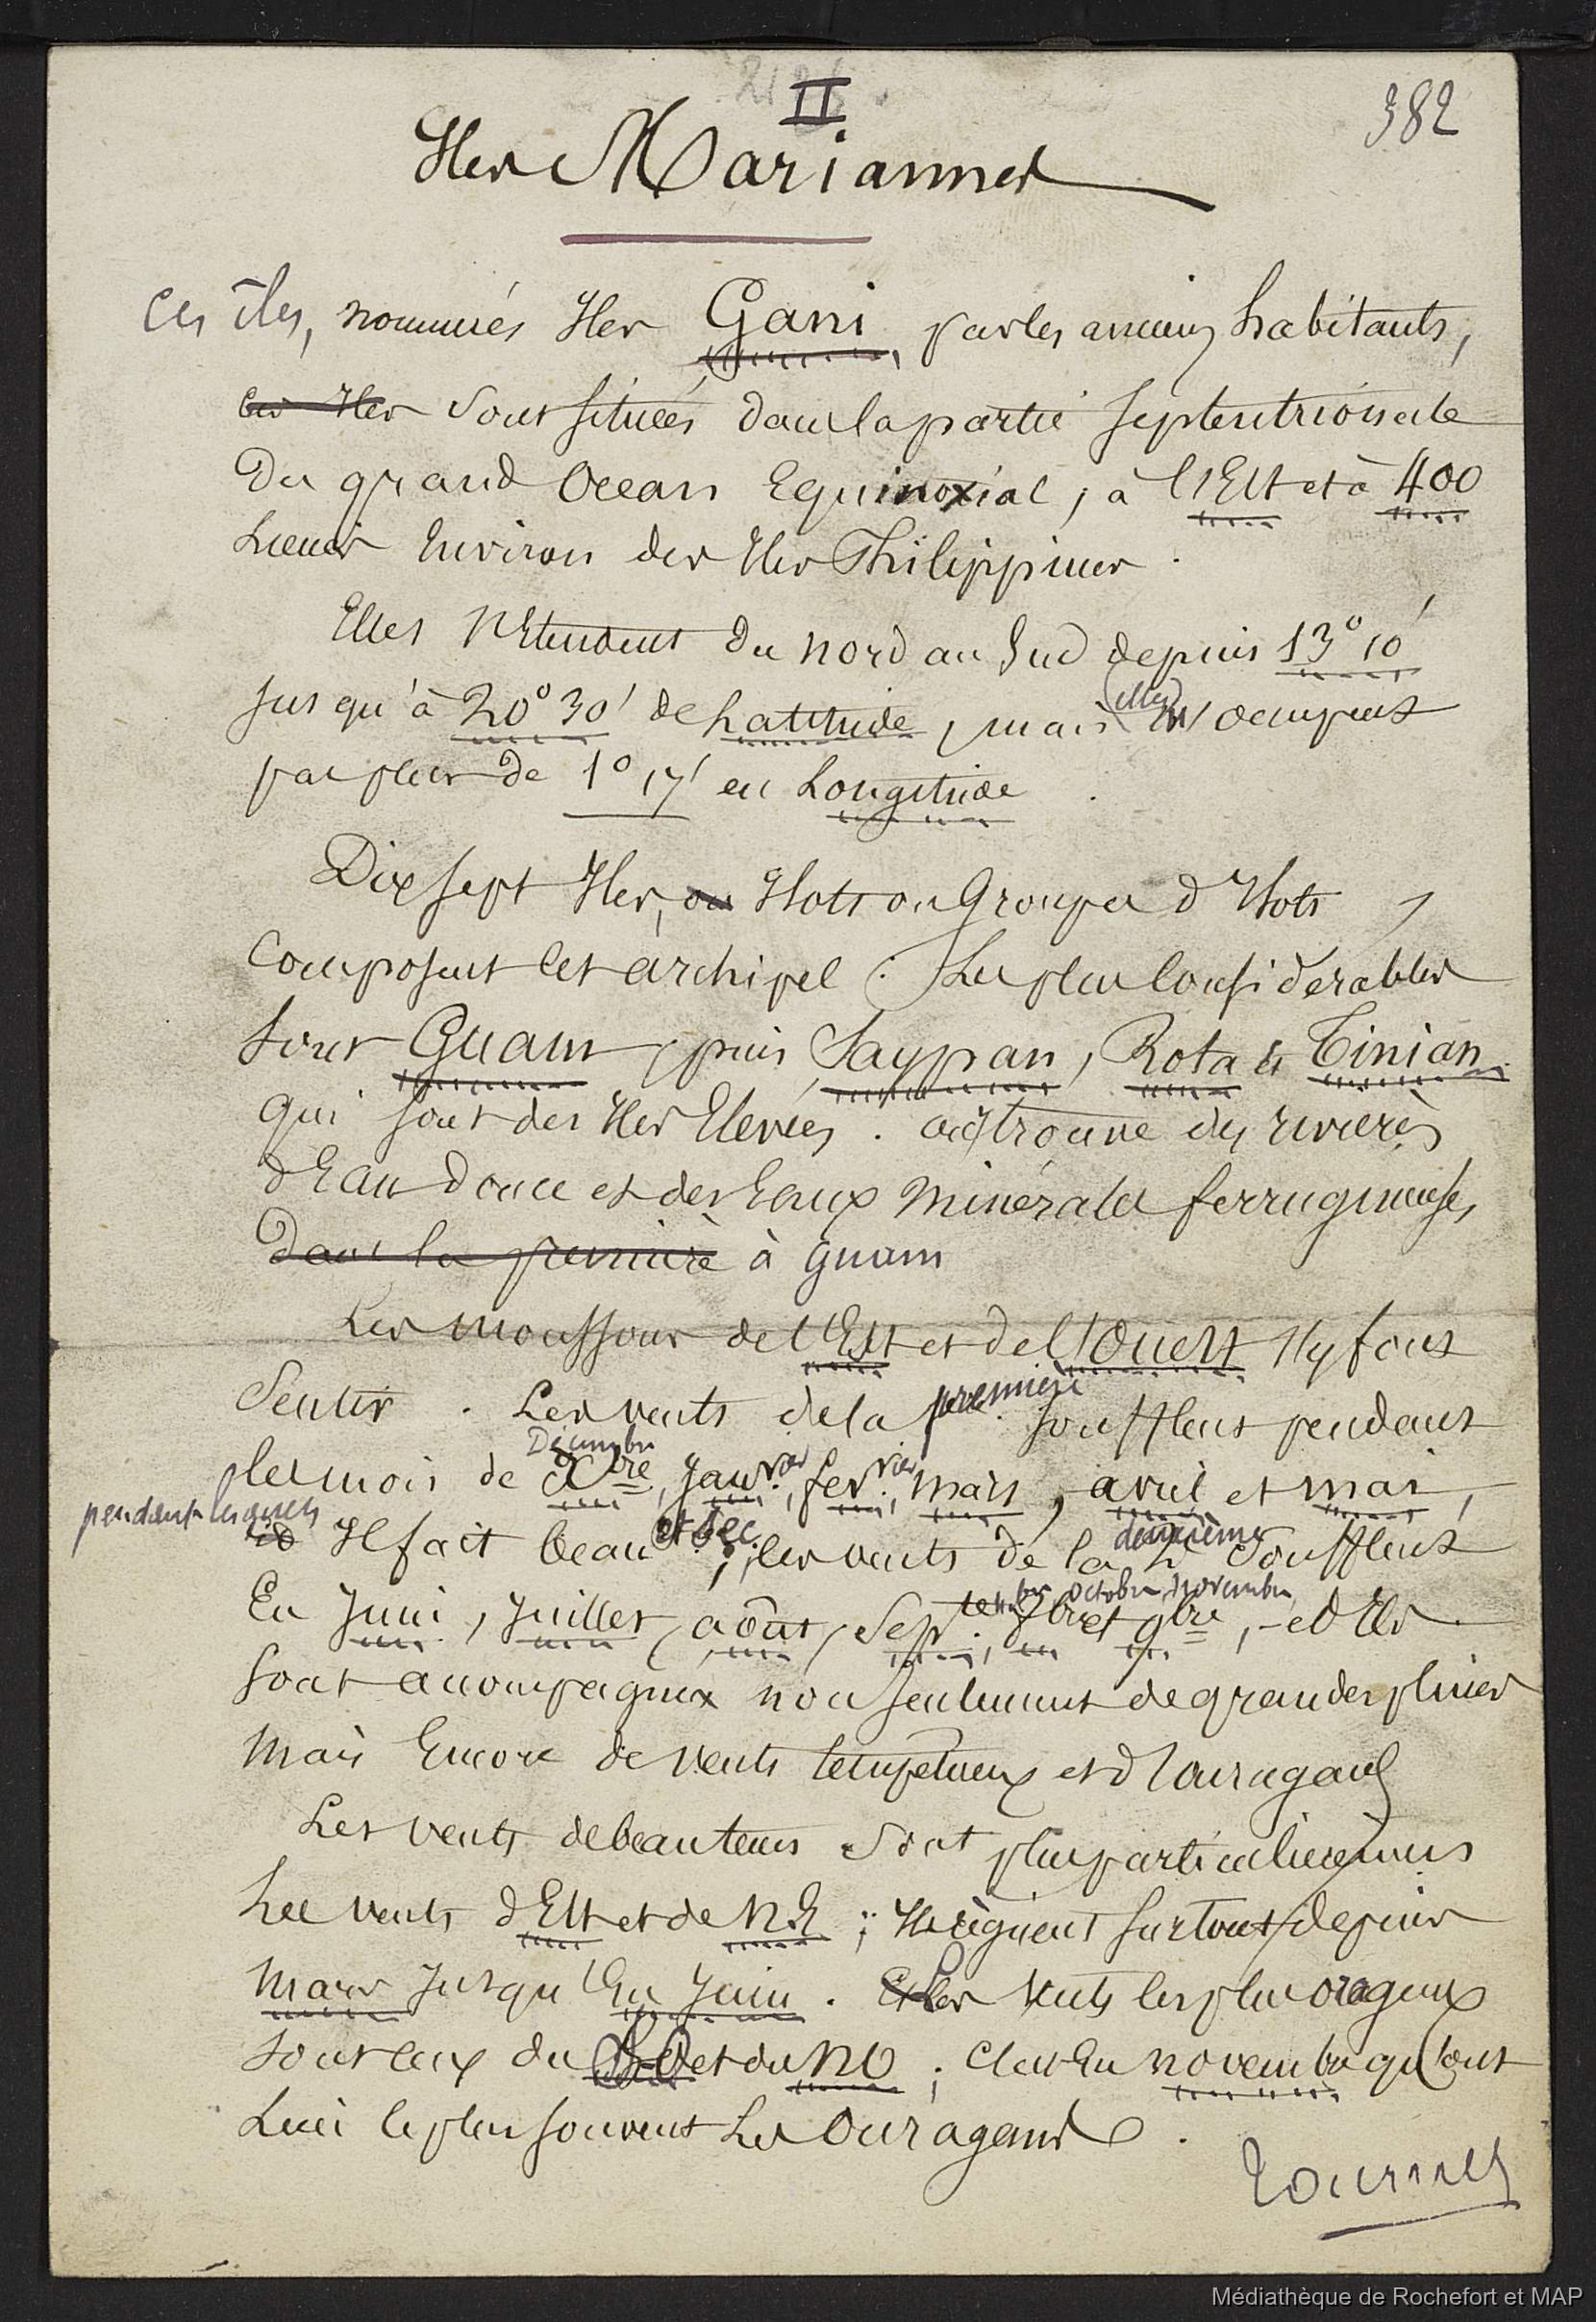 II
382
Iles Mariannes
Ces îles, nommées Iles Gani par les anciens habitants,
ces Iles sont situées dans la partie septentrionale
Du grand Ocean Equinoxial, à l'Est et à 400
Lieues Environ des Iles Philippines.
Elles s'Etendent du nord au Sud depuis 13° 10'
jusqu'à 20° 30' de Latitude, mais elles n'occupent
pas plus de 1° 17' en Longitude.
Dix sept Iles, ou Ilots ou Groupes d'Ilots
Composent cet archipel. Les plus Considerables
sont Guam, puis Saypan, Rota et Tinian
qui sont des Iles Elevées. on y trouve des rivières
d'Eau Douce et des Eaux minérales ferrugineuses,
dans la première à Guam
Les moussons de l'Est et de l'Ouest s'y font
Sentir. Les vents de la première soufflent pendant
les mois de Xbre Décembre, Janvier, fevrier, mars, avril et mai,
pendant lesquels Il fait beau et sec; les vents de la 2e deuxième soufflent
En Juin, Juillet, août, Septembre, 8bre et 9bre octobre, novembre, et Ils
sont accompagnés non seulement de grandes pluies
mais Encore de vents tempetueux et d'ouragans
Les vents de beau tems sont plus particulierement
Les vents d'Est et de N.E; Ils règnent surtout depuis
mars jusqu'En Juin. Et Les vents les plus orageux
sont ceux du S.O et du NO; c'est En novembre qu'ont
Lieu le plus souvent Les Ouragans.
Tournez
Médiathèque de Rochefort et MAP